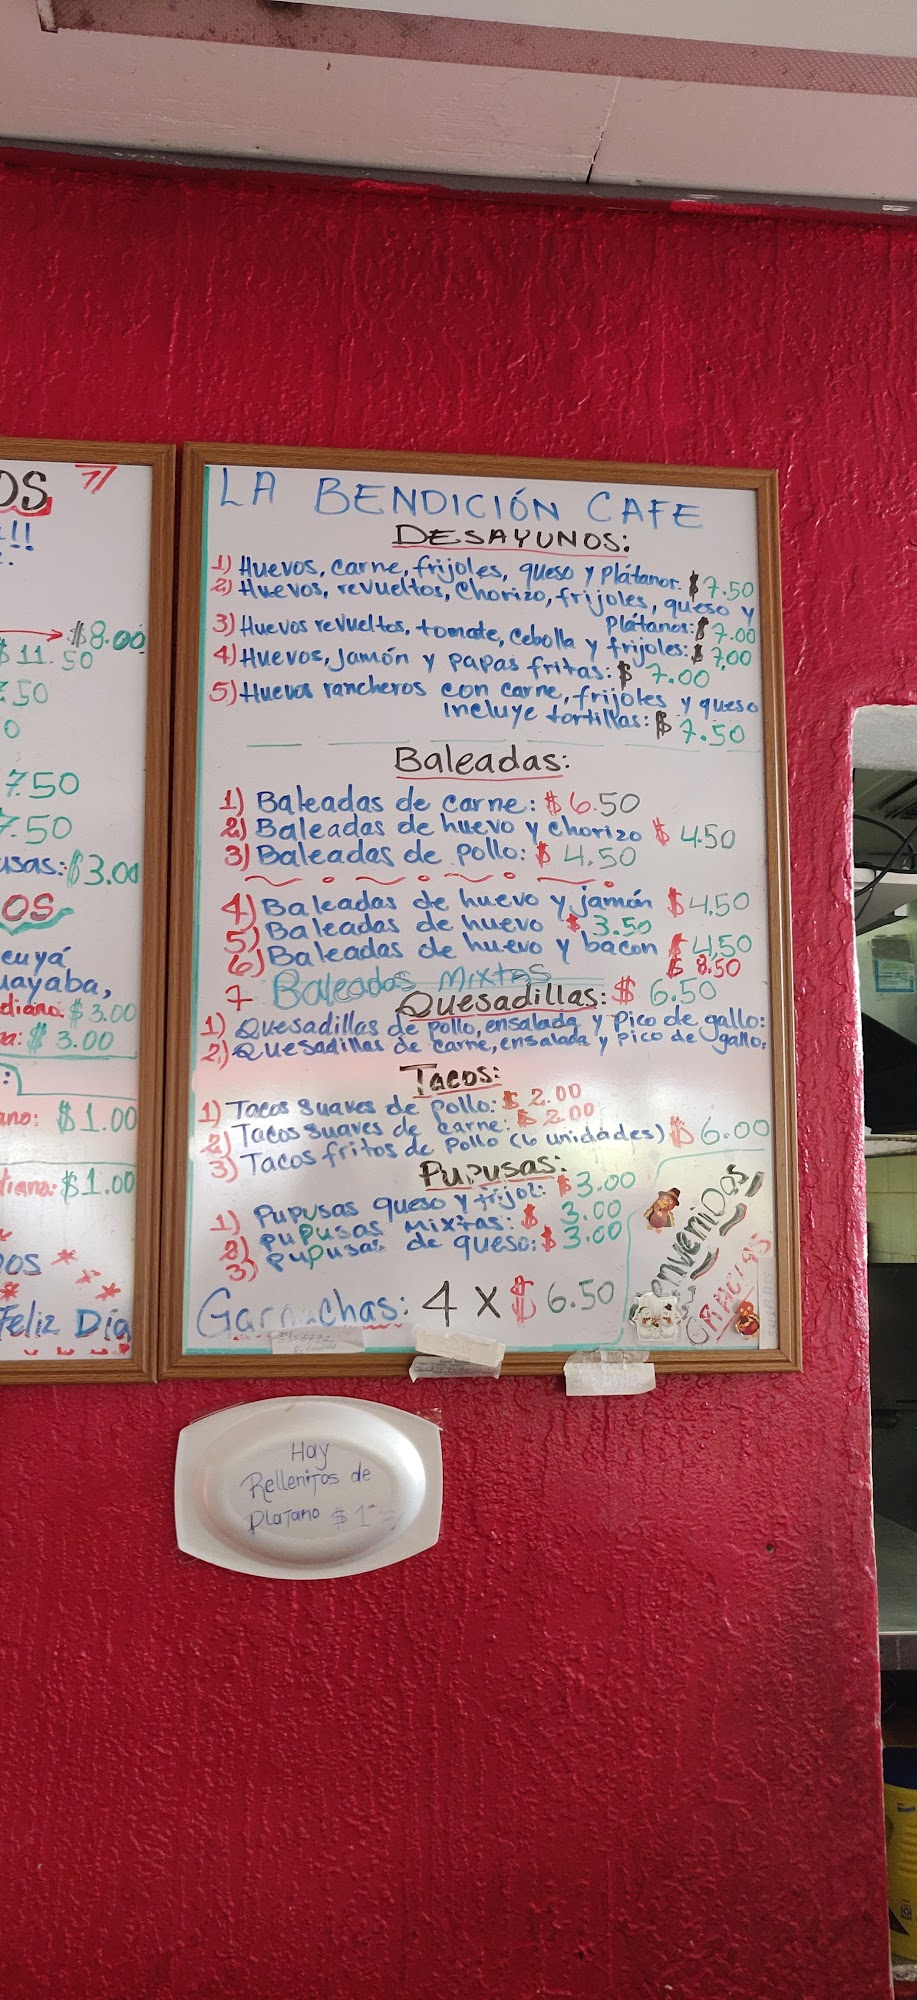 OS
!!
$8.00
$11.50
.50
0
7.50
7.50
usas: $3.00
OS
cuyá
uayaba,
diano: $3.00
na: $3.00
:
ano: $1.00
diana: $1.00
DOS
Feliz Día
LA BENDICIÓN CAFE
DESAYUNOS:
1) Huevos, carne, frijoles, queso y plátanos. $7.50
2) Huevos, revueltos, chorizo, frijoles, queso y
plátanos: $7.00
3) Huevos revueltos, tomate, cebolla y frijoles: $7,00
4) Huevos, jamón y papas fritas: $7.00
5) Huevos rancheros con carne, frijoles y queso
incluye tortillas: $7.50
Baleadas:
1) Baleadas de carne: $6.50
2) Baleadas de huevo y chorizo $4.50
3) Baleadas de pollo: $4.50
4) Baleadas de huevo y jamón $4.50
5) Baleadas de huevo $3.50
6) Baleadas de huevo y bacon $4,50
7 Baleadas Mixtas $8.50
Quesadillas: $6.50
1) Quesadillas de pollo, ensalada y pico de gallo:
2) Quesadillas de carne, ensalada y pico de gallo:
Tacos:
1) Tacos suaves de pollo: $2.00
2) Tacos suaves de carne: $2.00
3) Tacos fritos de pollo (6 unidades) $6.00
Pupusas:
1) Pupusas queso y frijol: $3.00
2) pupusas mixtas: $3.00
3) pupusas de queso: $3.00
Garnachas: 4 x $6.50
Bienvenidos
GRACIAS
Hay
Rellenitos de
Platano $1